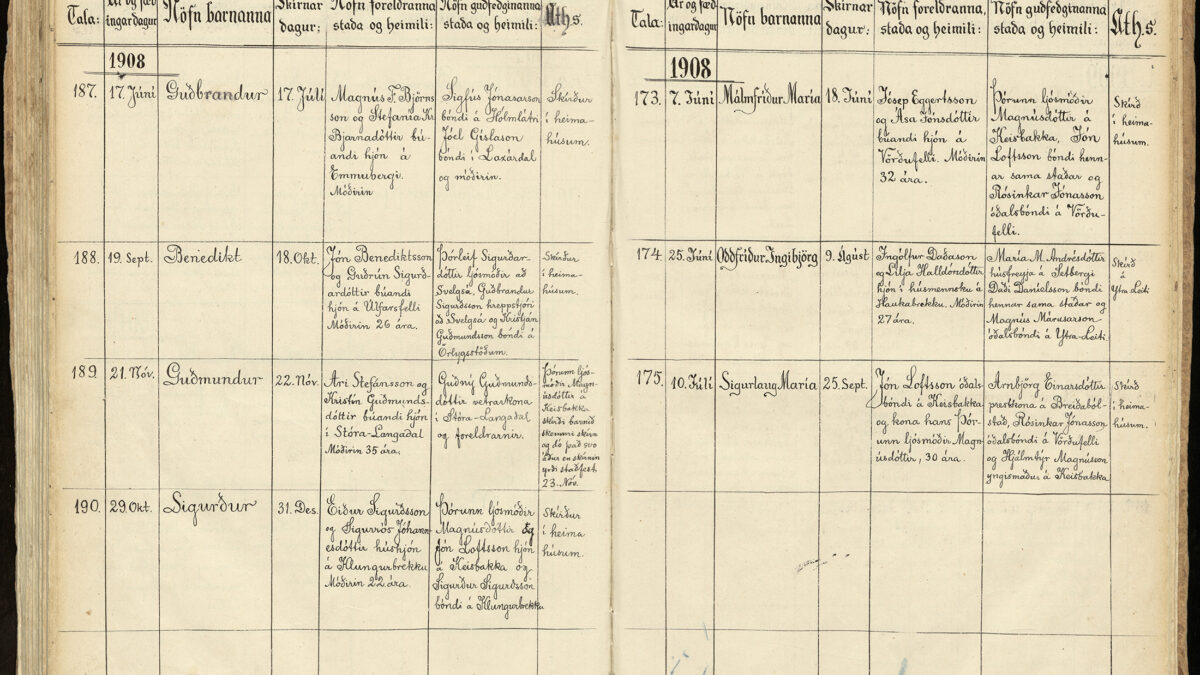 Tala:
Ár og fæð-
ingardagur
Nöfn barnanna
Skírnar
dagur:
Nöfn foreldranna
staða og heimili:
Nöfn guðfeðginanna
staða og heimili:
Aths.
1908
187.
17. Júní
Guðbrandur
17. Júlí
Magnús F. Björns
son og Stefanía Kr.
Bjarnadóttir bú-
andi hjón á
Emmubergi.
Móðirin
Sigfús Jónasarson
bóndi á Hólmlátri
Jóel Gíslason
bóndi í Laxárdal
og móðirin.
Skírður
í heima-
húsum.
188.
19. Sept.
Benedikt
18. Okt.
Jón Benediktsson
og Guðrún Sigurð-
ardóttir búandi
hjón á Úlfarsfelli
Móðirin 26 ára.
Þórleif Sigurðar-
dóttir ljósmóðir að
Svelgsá, Guðbrandur
Sigurðsson hreppstjóri
að Svelgsá og Kristján
Guðmundsson bóndi á
Örlygsstöðum.
Skírður
í heima-
húsum.
189.
21. Nóv.
Guðmundur
22. Nóv.
Ari Stefánsson og
Kristín Guðmunds-
dóttir búandi hjón
í Stóra-Langadal
Móðirin 35 ára.
Guðný Guðmunds-
dóttir vetrarkona
í Stóra-Langadal
og foreldrarnir.
Þórunn ljós-
móðir Magn-
úsdóttir á
Keisbakka
skírði barnið
skemmri skírn
og dó það svo
áður en skírnin
yrði staðfest
23. Nóv.
190.
29. Okt.
Sigurður
31. Des.
Eiður Sigurðsson
og Sigurrós Jóhann-
esdóttir húshjón
á Klungurbrekku
Móðirin 22 ára.
Þórunn ljósmóðir
Magnúsdóttir og
Jón Loftsson hjón
á Keisbakka og
Sigurður Sigurðsson
bóndi á Klungurbrekku
Skírður
í heima
húsum.
Tala:
Ár og fæð-
ingardagur
Nöfn barnanna
Skírnar
dagur:
Nöfn foreldranna,
staða og heimili:
Nöfn guðfeðginanna
staða og heimili:
Aths.
1908
173.
7. Júní
Málmfríður María
18. Júní
Jósep Eggertsson
og Ása Jónsdóttir
búandi hjón á
Vörðufelli. Móðirin
32 ára.
Þórunn ljósmóðir
Magnúsdóttir á
Keisbakka, Jón
Loftsson bóndi henn-
ar sama staðar og
Rósinkar Jónasson
óðalsbóndi á Vörðu-
felli.
Skírð
í heima-
húsum.
174.
25. Júní
Oddfríður Ingibjörg
9. Ágúst
Ingólfur Daðason
og Lilja Halldórsdóttir
hjón í húsmennsku á
Haukabrekku. Móðirin
27 ára.
María M. Andrésdóttir
húsfreyja á Setbergi
Daði Daníelsson bóndi
hennar sama staðar og
Magnús Márusarson
óðalsbóndi á Ytra-Leiti
Skírð
á
Ytra-Leiti
175.
10. Júlí
Sigurlaug María
25. Sept.
Jón Loftsson óðals-
bóndi á Keisbakka
og kona hans Þór-
unn ljósmóðir Magn-
úsdóttir, 30 ára.
Arnbjörg Einarsdóttir
prestkona á Breiðaból-
stað, Rósinkar Jónasson
óðalsbóndi á Vörðufelli
og Hjálmtýr Magnússon
yngismaður á Keisbakka
Skírð
í heima-
húsum.